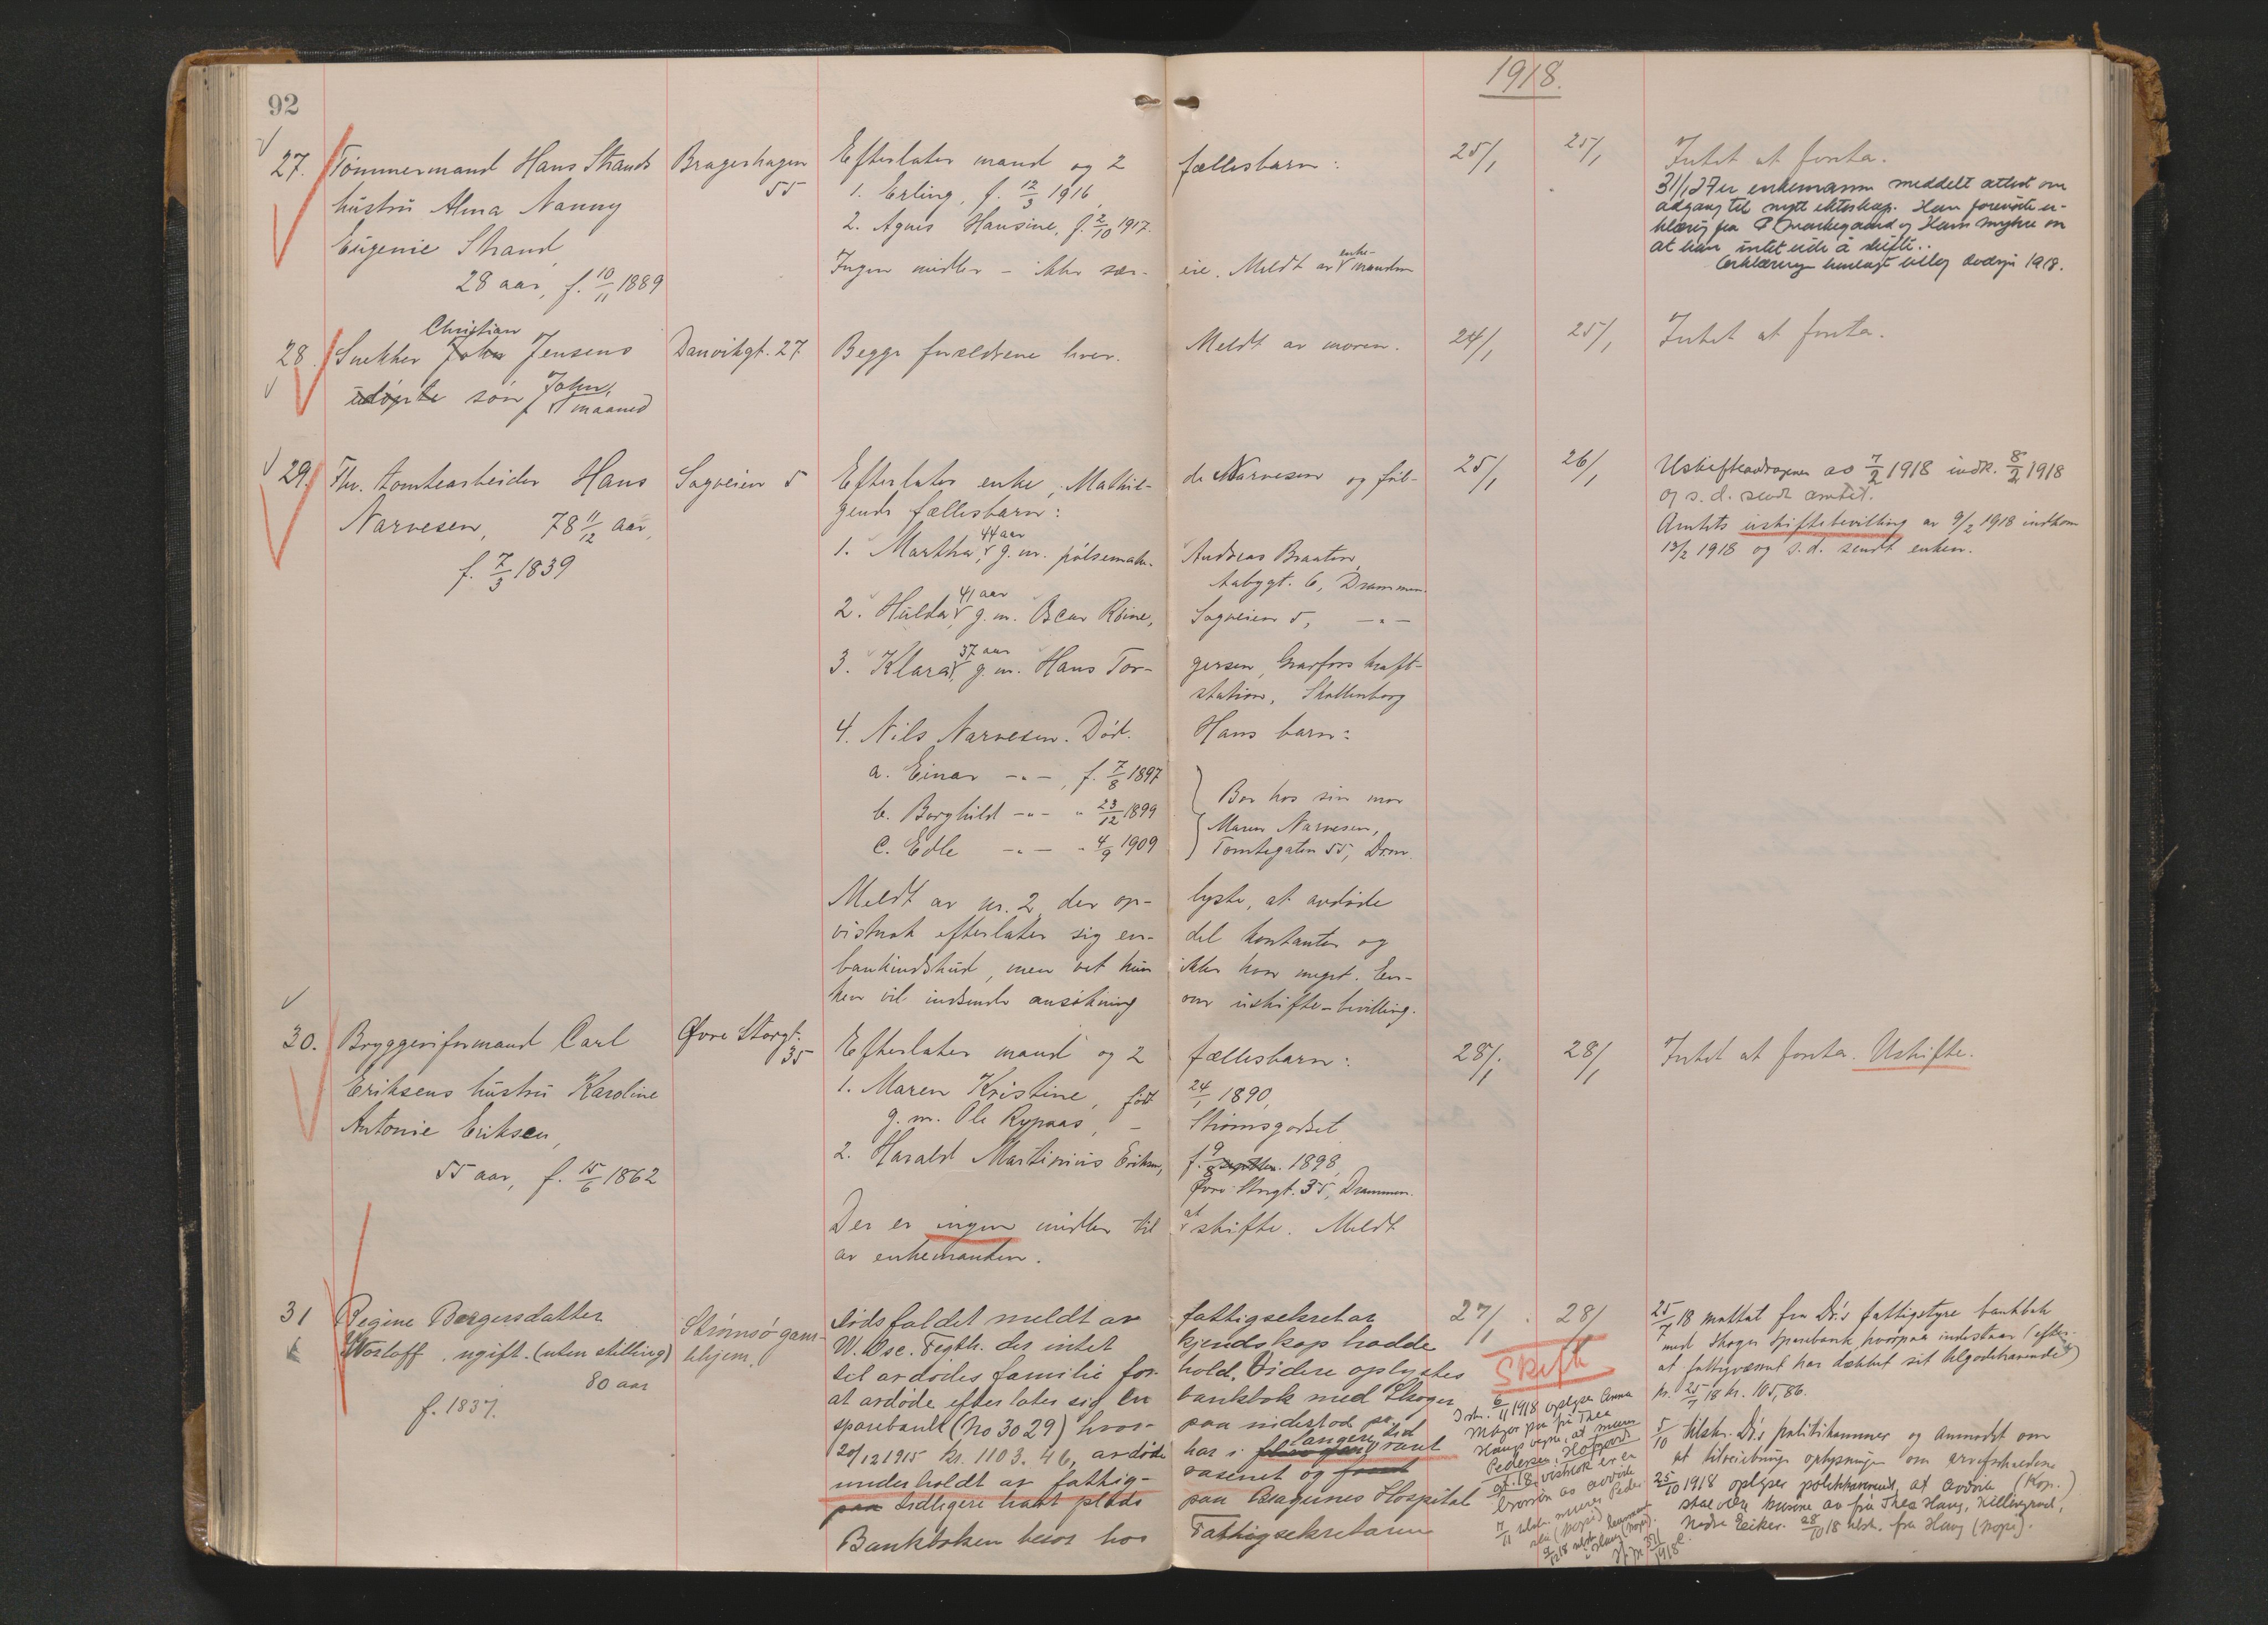 92
1918.
27. Tømmermand Hans Strands
hustru Alma Nanny
Eugenie Strand,
28 aar, f. 10/11 1889
Bragerhagen
55
Efterlater mand og 2 fællesbarn:
1. Erling, f. 12/3 1916
2. Agnes Hansine, f. 2/10 1917.
Ingen midler - ikke sær- eie. Meldt av enke- manden
25/1
25/1
Intet at foreta.
31/1 27 er enkemannen meddelt attest om
adgang til nytt ekteskap. Han foreviste er-
klæring fra
at han intet eide å skifte..
Erklæringen henlagt bilag dødsj. 1918.
28. Snekker Christian John Jensens
udøpte søn John,
1 maaned
Danvikgt. 27
Begge forældrene lever. Meldt av moren.
24/1
25/1
Intet at foreta.
29. Fhv. tomtearbeider Hans
Narvesen, 78 11/12 aar,
f. 7/3 1839
Sagveien 5
Efterlater enke, Mathil- de Narvesen og føl-
gende fællesbarn:
1. Martha, 44 aar g. m. pølsemak. Andreas Braaten,
Aabygt. 6, Drammen.
2. Hulda, 41 aar g. m. Oscar Röine, Sagveien 5, -"-
3. Klara, 37 aar g. m. Hans Tor- gersen, Gravfos kraft-
station, Skollenborg
4. Nils Narvesen. Død. Hans barn:
a. Einar -"-, f. 7/8 1897
b. Borghild -"- " 23/12 1899
c. Edle -"- " 4/9 1909
Bor hos sin mor
Maren Narvesen,
Tomtegaten 55, Drm.
Meldt av nr. 2, der op- lyste, at avdøde
vistnok efterlater sig en- del kontanter og
bankindskud, men vet hun ikke hvor meget. En-
ken vil indsende ansøkning om uskifte-bevilling.
25/1
26/1
Uskifteandragende av 7/2 1918 indk. 8/2 1918
og s. d. sendt amtet.
Amtets uskiftebevilling av 9/2 1918 indkom
13/2 1918 og s. d. sendt enken.
30. Bryggeriformand Carl
Eriksens hustru Karoline
Antonie Eriksen,
55 aar, f. 15/6 1862
Øvre Storgt.
35
Efterlater mand og 2 fællesbarn:
1. Maren Kristine, født 24/1 1890,
g. m. Ole Rypaas, - Strømsgodset
2. Harald Martinius Eriksen, f. 9/8 1898,
Øvre Storgt. 35, Drammen.
Der er ingen midler til at skifte. Meldt
av enkemanden.
28/1
28/1
Intet at foreta. Uskifte.
31 Regine Borgersdatter
Worloff, ugift. (uten stilling)
80 aar
f. 1837.
Strømsø gam-
lehjem.
Dødsfaldet meldt av fattigsekretær
W. Osc. Fegth. der intet kjendskap hadde
til avdødes familie for- hold. Videre oplystes
at avdøde efterlater sig en bankbok med Skoger
sparebank (No 3029) hvor- paa indestod pr.
20/12 1915 kr. 1103.46, avdøde har i længere tid været
underholdt av fattig- væsenet og
paa tidligere havt plads paa Bragernes Hospital
Bankboken beror hos Fattigsekretæren
27/1
28/1
Skifte
Iskr. 6/11 1918 oplyser Anna
Møger paa fru Thea
Haugs vegne, at
Pedersen, Hofgaard
gt. 18 vistnok er en
av avdøde
25/7 18 mottat fra Dr.s fattigstyre bankbok
med Skoger Sparebank, hvorpaa indestaar (efter-
at fattigvæsenet har dækket sit tilgodehavende)
pr. 25/7 18 kr. 105,86.
5/10 tilskr. Dr.s politikammer og anmodet om
at tilveiebringe oplysninger om arveforholdene
25/10 1918 oplyser politikammeret, at avdøde (Kop.)
skal være kusine av fru Thea Haug, Killingrud,
Nedre Eiker. 28/10 18 tilskr. fru Haug (kopi).